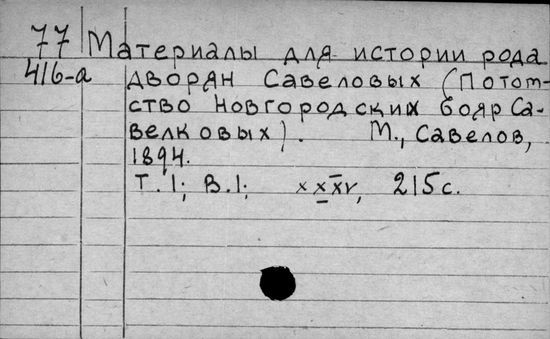 77 Материалы для истории рода
416-а дворян Савеловых (Потом-
ство новгородских бояр Са-
велковых). М., Савелов,
1894.
Т. 1; В. 1; XXXV, 215 с.